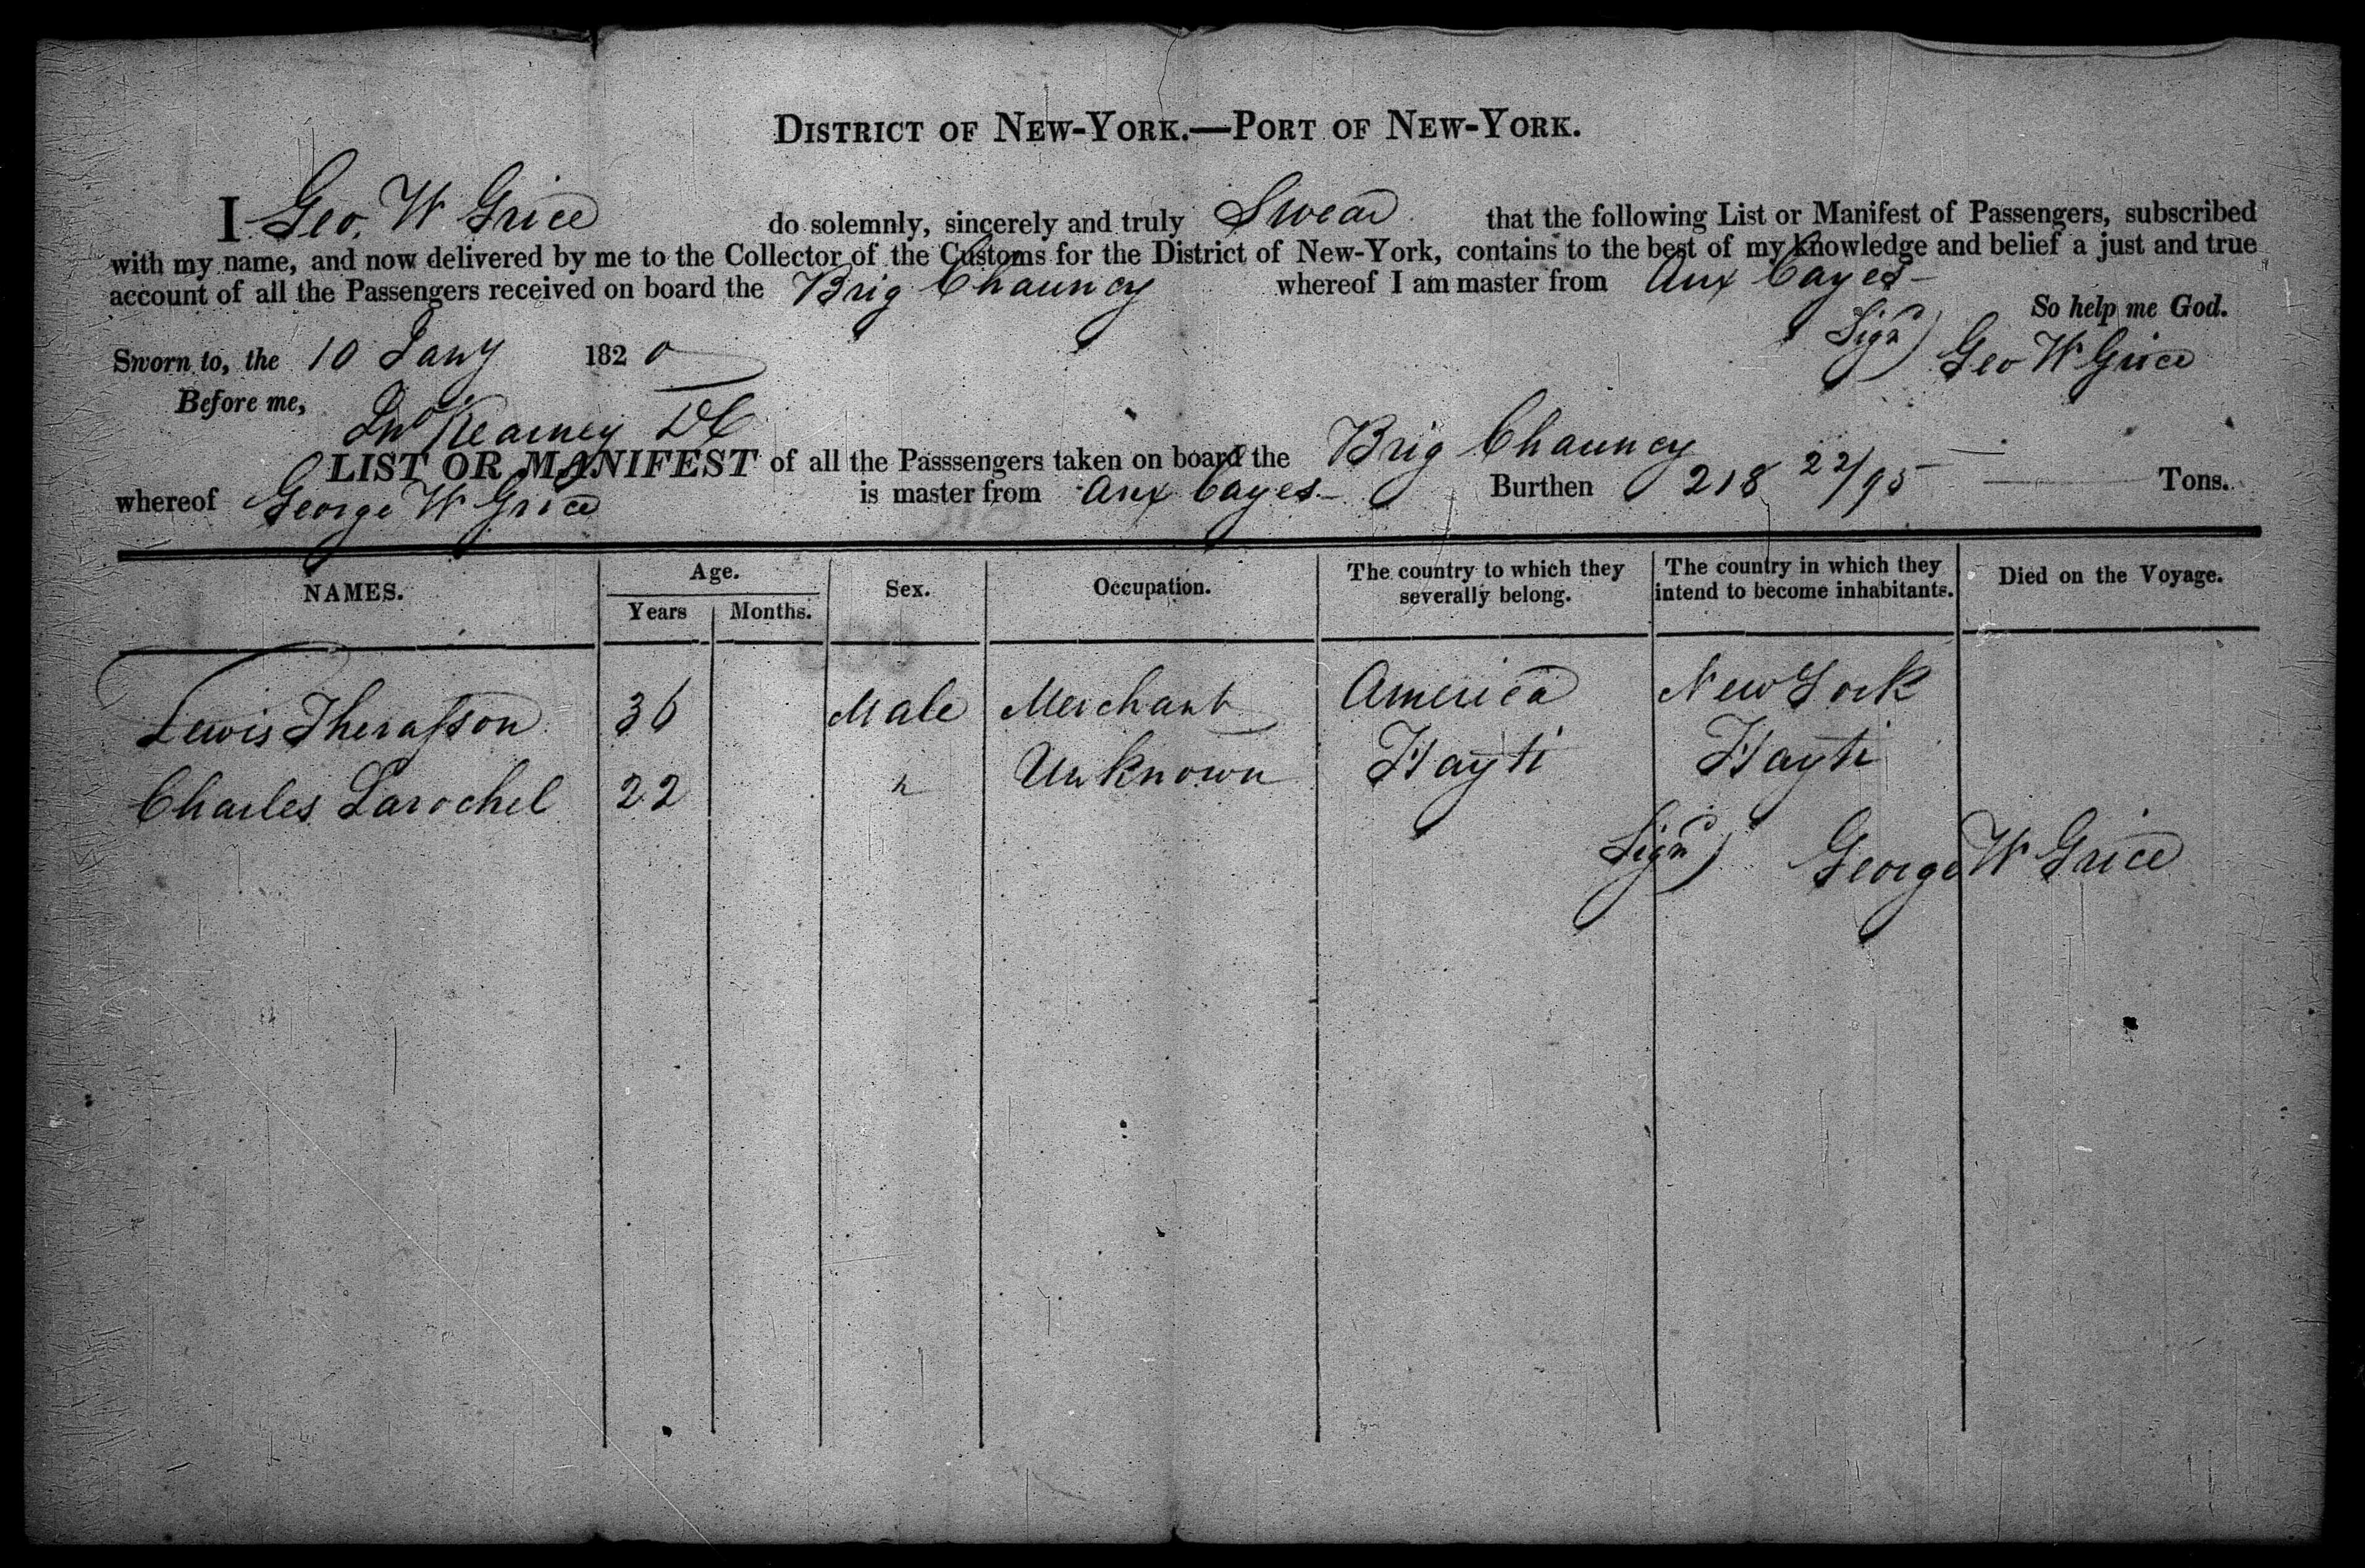 DISTRICT OF NEW-YORK.—PORT OF NEW-YORK.
I Geo. W Grice do solemnly, sincerely and truly Swear that the following List or Manifest of Passengers, subscribed
with my name, and now delivered by me to the Collector of the Customs for the District of New-York, contains to the best of my knowledge and belief a just and true
account of all the Passengers received on board the Brig Chauncy whereof I am master from Aux Cayes-
So help me God.
Sworn to, the 10 Jany 1820 Signd) Geo W Grice
Before me,
Jno Kearney DC
LIST OR MANIFEST of all the Passsengers taken on board the Brig Chauncy
whereof George W Grice is master from Aux Cayes- Burthen 218 22/95 Tons.
NAMES. Age. Sex. Occupation. The country to which they severally belong. The country in which they intend to become inhabitants. Died on the Voyage.
Years Months.
Lewis Therasson 36 Male Merchant America New York
Charles Larochel 22 " Unknown Hayti Hayti
Signd) George W Grice